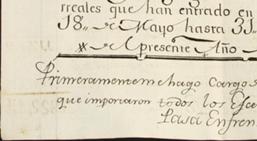 rreales que han entrado en
18,, de Mayo hasta 31
de el presente Año
Primeramente me hago Cargo s
que importaron todos los